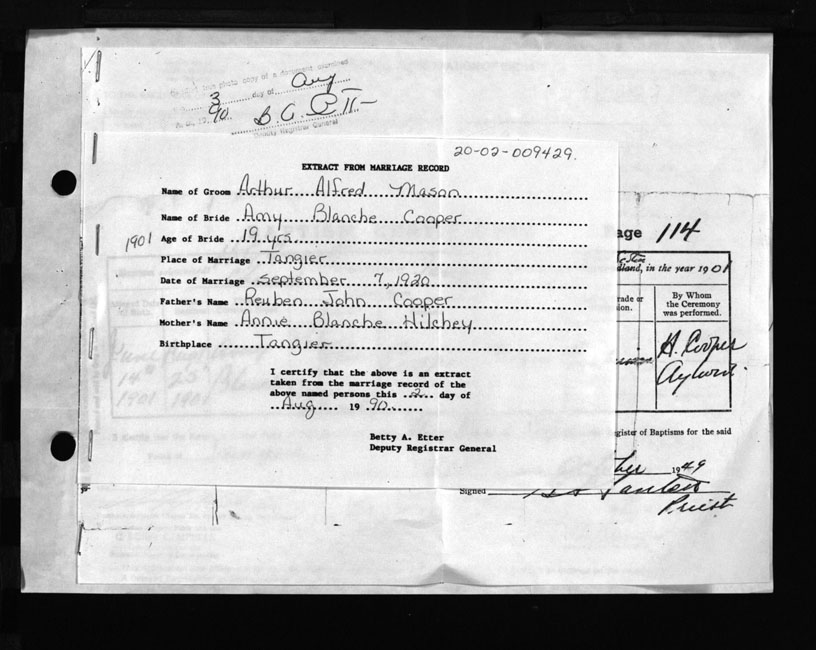 true photo copy of a document
3 day of Aug
A. D. 19 90
Deputy Registrar General
20-02-009429.
EXTRACT FROM MARRIAGE RECORD
Name of Groom Arthur Alfred Mason
Name of Bride Amy Blanche Cooper
1901 Age of Bride 19 yrs
Place of Marriage Tangier
Date of Marriage September 7, 1920
Father's Name Reuben John Cooper
Mother's Name Annie Blanche Hilchey
Birthplace Tangier
I certify that the above is an extract
taken from the marriage record of the
above named persons this 2 day of
Aug 19 90
Betty A. Etter
Deputy Registrar General
age 114
land, in the year 1901
rade or
ion.
By Whom
the Ceremony
was performed.
A. Cooper
June
14th 25
1901 1901
gister of Baptisms for the said
ber 1949
Signed
Priest